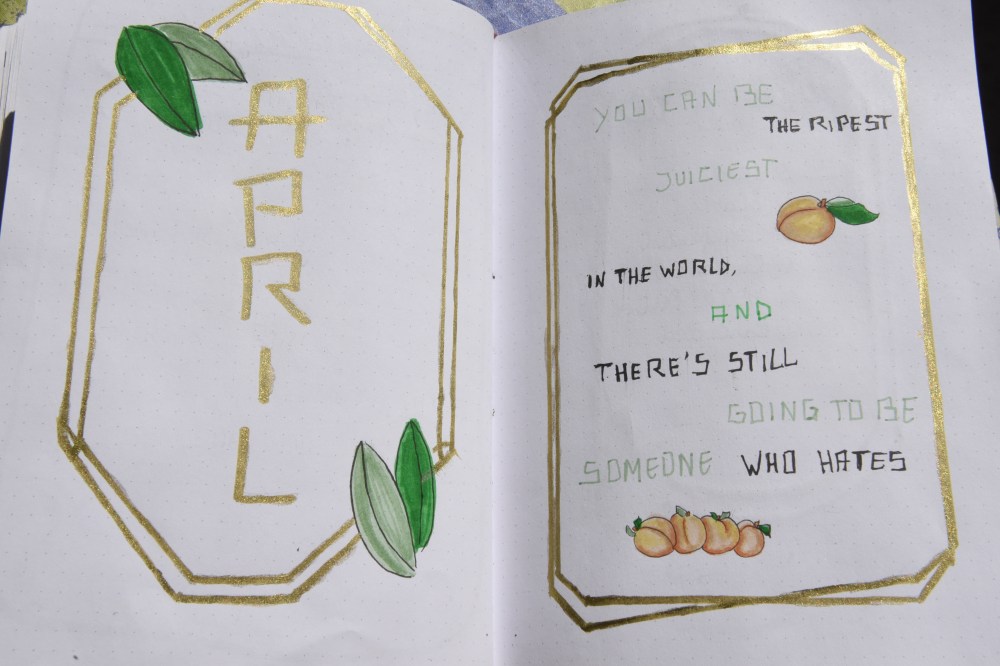 APRIL
YOU CAN BE
THE RIPEST
JUICIEST
IN THE WORLD,
AND
THERE'S STILL
GOING TO BE
SOMEONE WHO HATES